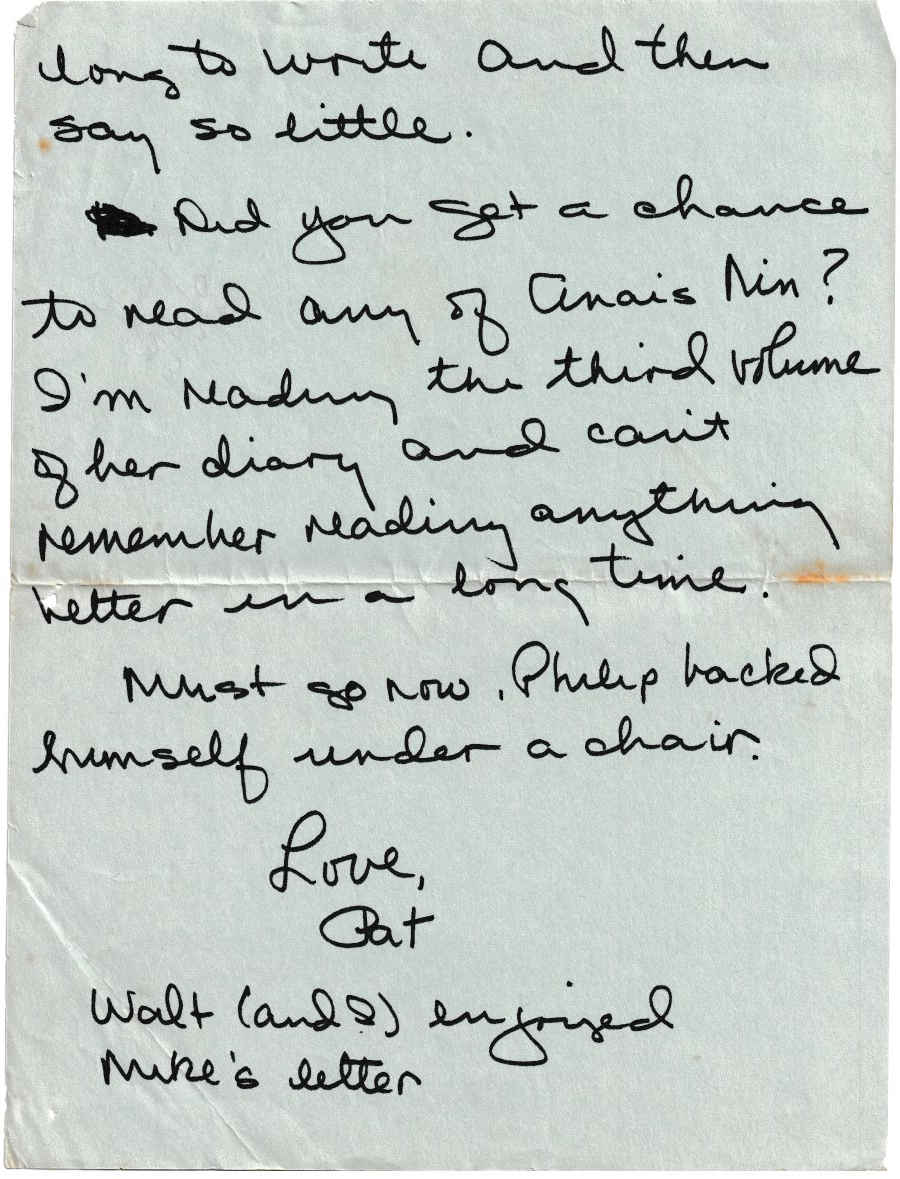 long to write and then
say so little.
Did you get a chance
to read any of Anais Nin?
I'm reading the third volume
of her diary and can't
remember reading anything
better in a long time.
Must go now. Philip backed
himself under a chair.
Love,
Pat
Walt (and I) enjoyed
Mike's letter